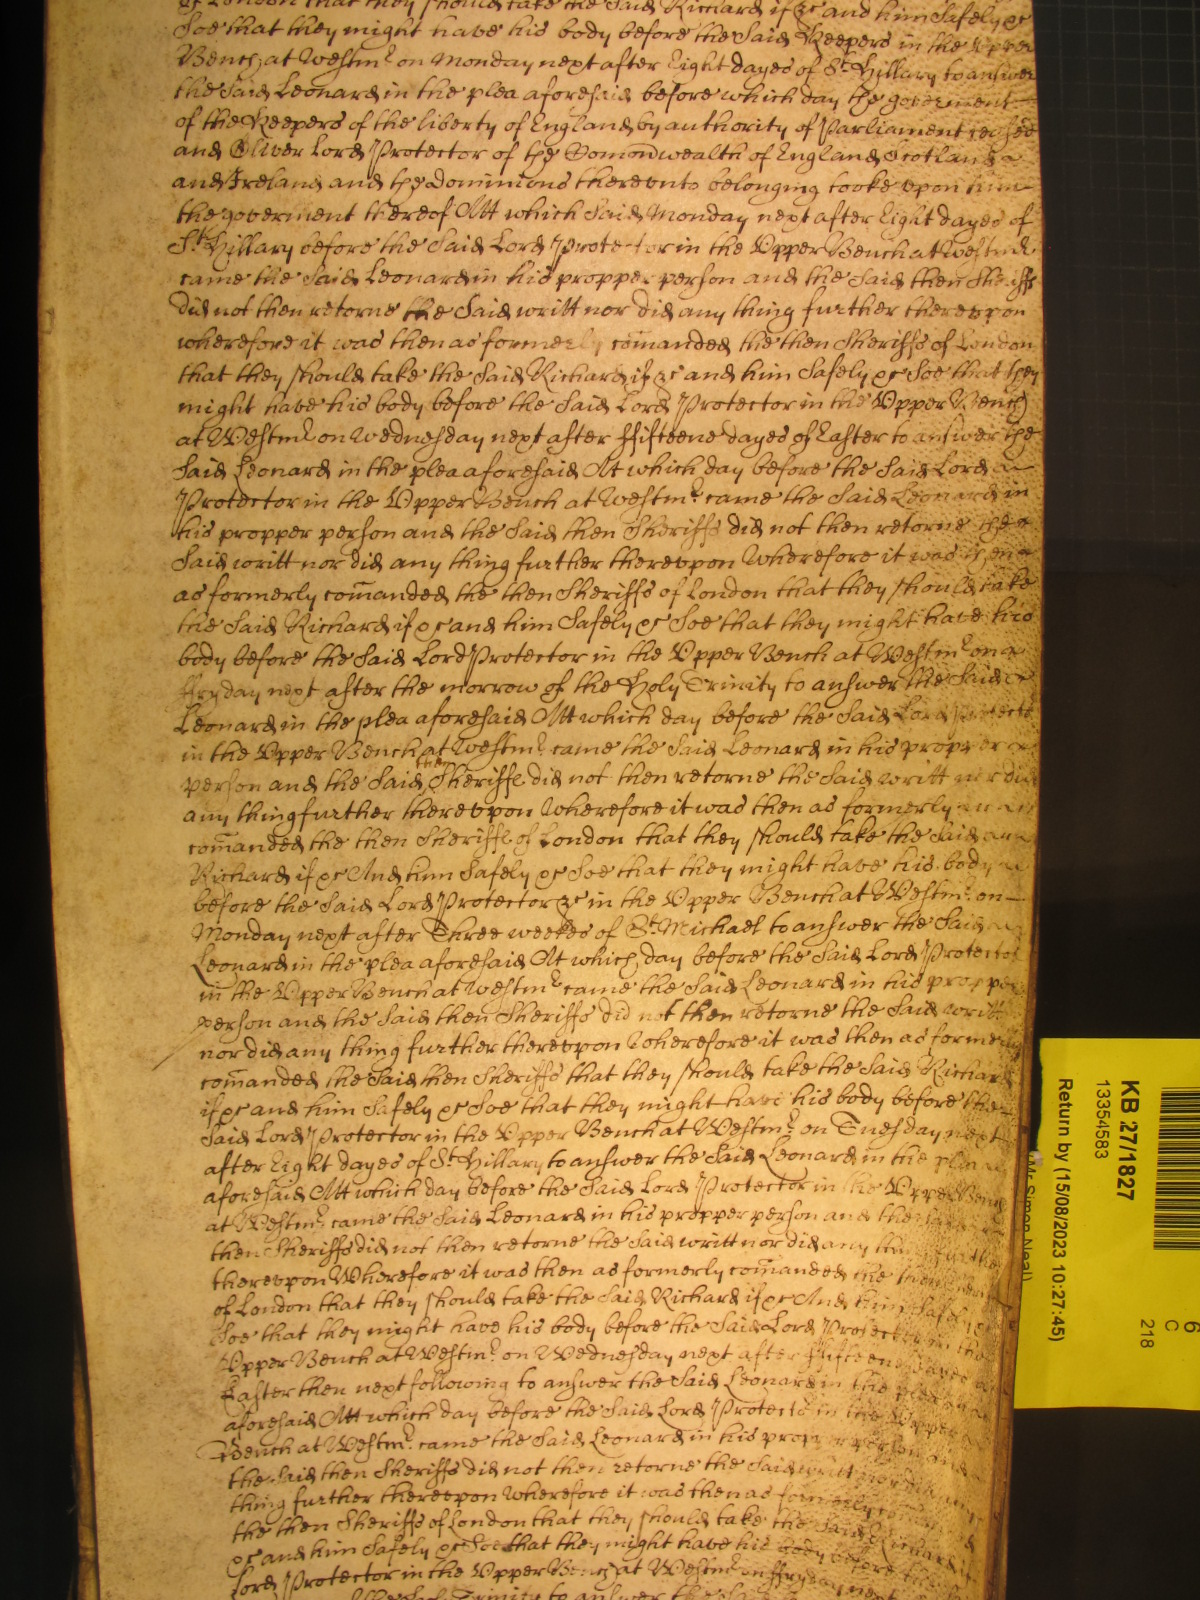 of London that they should take the said Richard if &c and him safely &c
Soe that they might have his body before the said Keepers in the Upper
Bench at Westmr on Monday next after Eight dayes of St Hillary to answer
the said Leonard in the plea aforesaid before which day the goverment
of the Keepers of the liberty of England by authority of Parliament ceased
and Oliver Lord Protector of the Comonwealth of England Scotland
and Ireland and the dominions thereunto belonging tooke upon him
the goverment thereof Att which said Monday next after Eight dayes of
St Hillary before the said Lord Protector in the Upper Bench at Westmr
came the said Leonard in his propper person and the said then Sheriffs
did not then retorne the said writt nor did any thing further thereupon
wherefore it was then as formerly comanded the then Sheriffs of London
that they should take the said Richard if &c and him safely &c Soe that they
might have his body before the said Lord Protector in the Upper Bench
at Westmr on Wednesday next after ffifteene dayes of Easter to answer the
said Leonard in the plea aforesaid At which day before the said Lord
Protector in the Upper Bench at Westmr came the said Leonard in
his propper person and the said then Sheriffs did not then retorne the
said writt nor did any thing further thereupon Wherefore it was then
as formerly comanded the then Sheriffs of London that they should take
the said Richard if &c and him safely &c Soe that they might have his
body before the said Lord Protector in the Upper Bench at Westmr on
ffryday next after the morrow of the Holy Trinity to answer the said
Leonard in the plea aforesaid Att which day before the said Lord Protector
in the Upper Bench at Westmr came the said Leonard in his propper
person and the said then Sheriffs did not then retorne the said writt nor did
any thing further thereupon Wherefore it was then as formerly
comanded the then Sheriffs of London that they should take the said
Richard if &c And him safely &c Soe that they might have his body
before the said Lord Protector &c in the Upper Bench at Westmr on
Monday next after Three weekes of St Michael to answer the said
Leonard in the plea aforesaid At which day before the said Lord Protector
in the Upper Bench at Westmr came the said Leonard in his propper
person and the said then Sheriffs did not then retorne the said writt
nor did any thing further thereupon Wherefore it was then as formerly
comanded the said then Sheriffs that they should take the said Richard
if &c and him safely &c Soe that they might have his body before the
said Lord Protector in the Upper Bench at Westmr on Tuesday next
after Eight dayes of St Hillary to answer the said Leonard in the plea
aforesaid Att which day before the said Lord Protector in the Upper Bench
at Westmr came the said Leonard in his propper person and the said
then Sheriffs did not then retorne the said writt nor did any thing further
thereupon Wherefore it was then as formerly comanded the then Sheriffs
of London that they should take the said Richard if &c And him safely &c
Soe that they might have his body before the said Lord Protector in the
Upper Bench at Westmr on Wednesday next after ffifteene dayes of
Easter then next following to answer the said Leonard in the plea
aforesaid Att which day before the said Lord Protector in the Upper
Bench at Westmr came the said Leonard in his propper person and
the said then Sheriffs did not then retorne the said writt nor did any
thing further thereupon Wherefore it was then as formerly comanded
the then Sheriffs of London that they should take the said Richard if
&c and him safely &c Soe that they might have his body before the
Lord Protector in the Upper Bench at Westmr on ffryday next
Trinity to answer the
KB 27/1827
13354583
Return by (15/08/2023 10:27:45)
Mr Simon Neal)
6
C
218